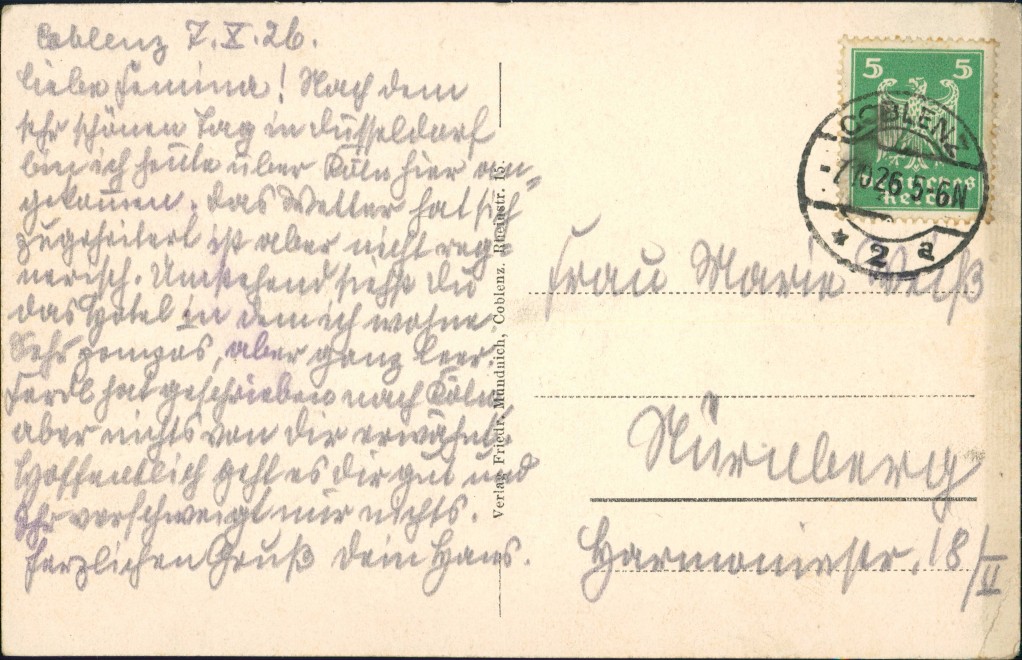 Coblenz 7.X.26.
Liebe Femina! Nach dem
sehr schönen Tag in Düsseldorf
bin ich heute über Köln hier an-
gekommen. Das Wetter hat sich
zugeheitert ist aber nicht reg-
nerisch. Umstehend siehst Du
das Hotel in dem ich wohne
Sehr pompös, aber ganz leer.
Ferdl hat geschrieben nach Köln
aber nichts von Dir erwähnt.
Hoffentlich geht es Dir gut und
Ihr verschweigt mir nichts.
Herzlichen Gruß Dein Hans.
Verlag Friedr. Mündnich, Coblenz. Rheinstr. 15.
5 5
Deutsches
Reich
COBLENZ
-7.10.26.5-6N
* 2 a
Frau Marie Weiß
Nürnberg
Harmoniestr. 18/II